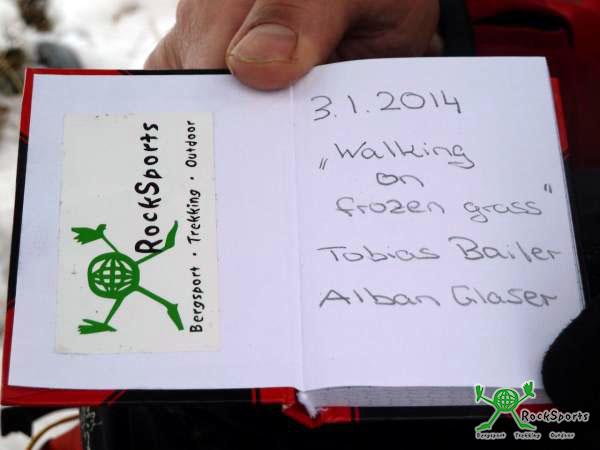 RockSports
Bergsport · Trekking · Outdoor
3.1.2014
„Walking
on
frozen grass"
Tobias Bailer
Alban Glaser
RockSports
Bergsport Trekking Outdoor